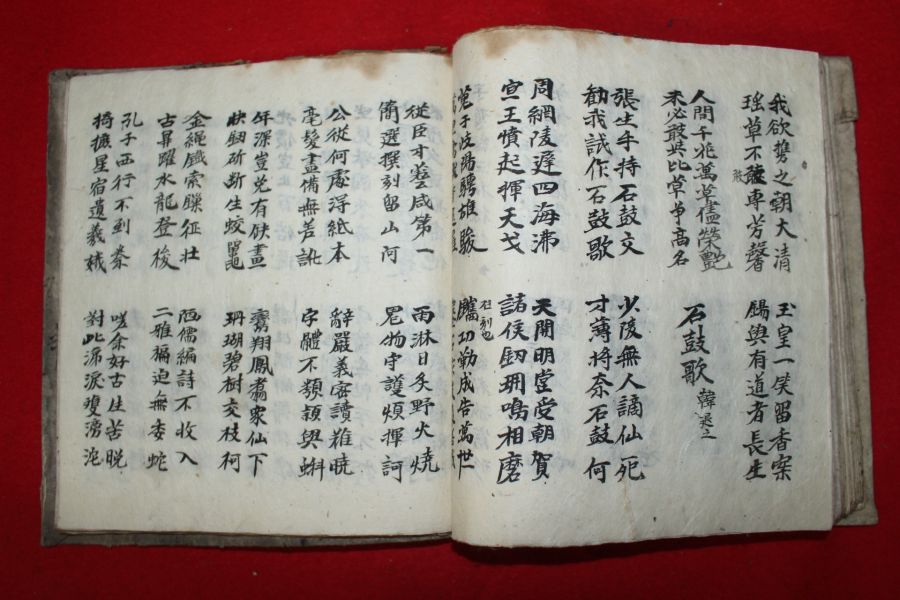 我欲携之朝大清
瑤草不敢專芳馨
玉皇一笑留香案
賜與有道者長生
人間千花萬草儘榮艷
未必敢共此草爭高名
石鼓歌 韓退之
張生手持石鼓文
勸我試作石鼓歌
少陵無人謫仙死
才薄將奈石鼓何
周綱陵遲四海沸
宣王憤起揮天戈
天開明堂受朝賀
諸侯釼珊鳴相磨
蒐于岐陽騁雄駿
鐫功勒成告萬世
從臣才藝咸第一
簡選撰刻留山河
雨淋日炙野火燒
鬼物守護煩揮訶
公從何處得紙本
毫髮盡備無差訛
辭嚴義密讀難曉
字體不類與蝌
年深豈免有缺畫
快釼斫斷生蛟鼉
鸞翔鳳翥衆仙下
珊瑚碧樹交枝柯
金繩鐵索壯
古鼎躍水龍登梭
陋儒編詩不收入
二雅褊迫無委蛇
孔子西行不到秦
掎摭星宿遺羲娥
嗟余好古生苦晚
對此涕淚雙滂沱